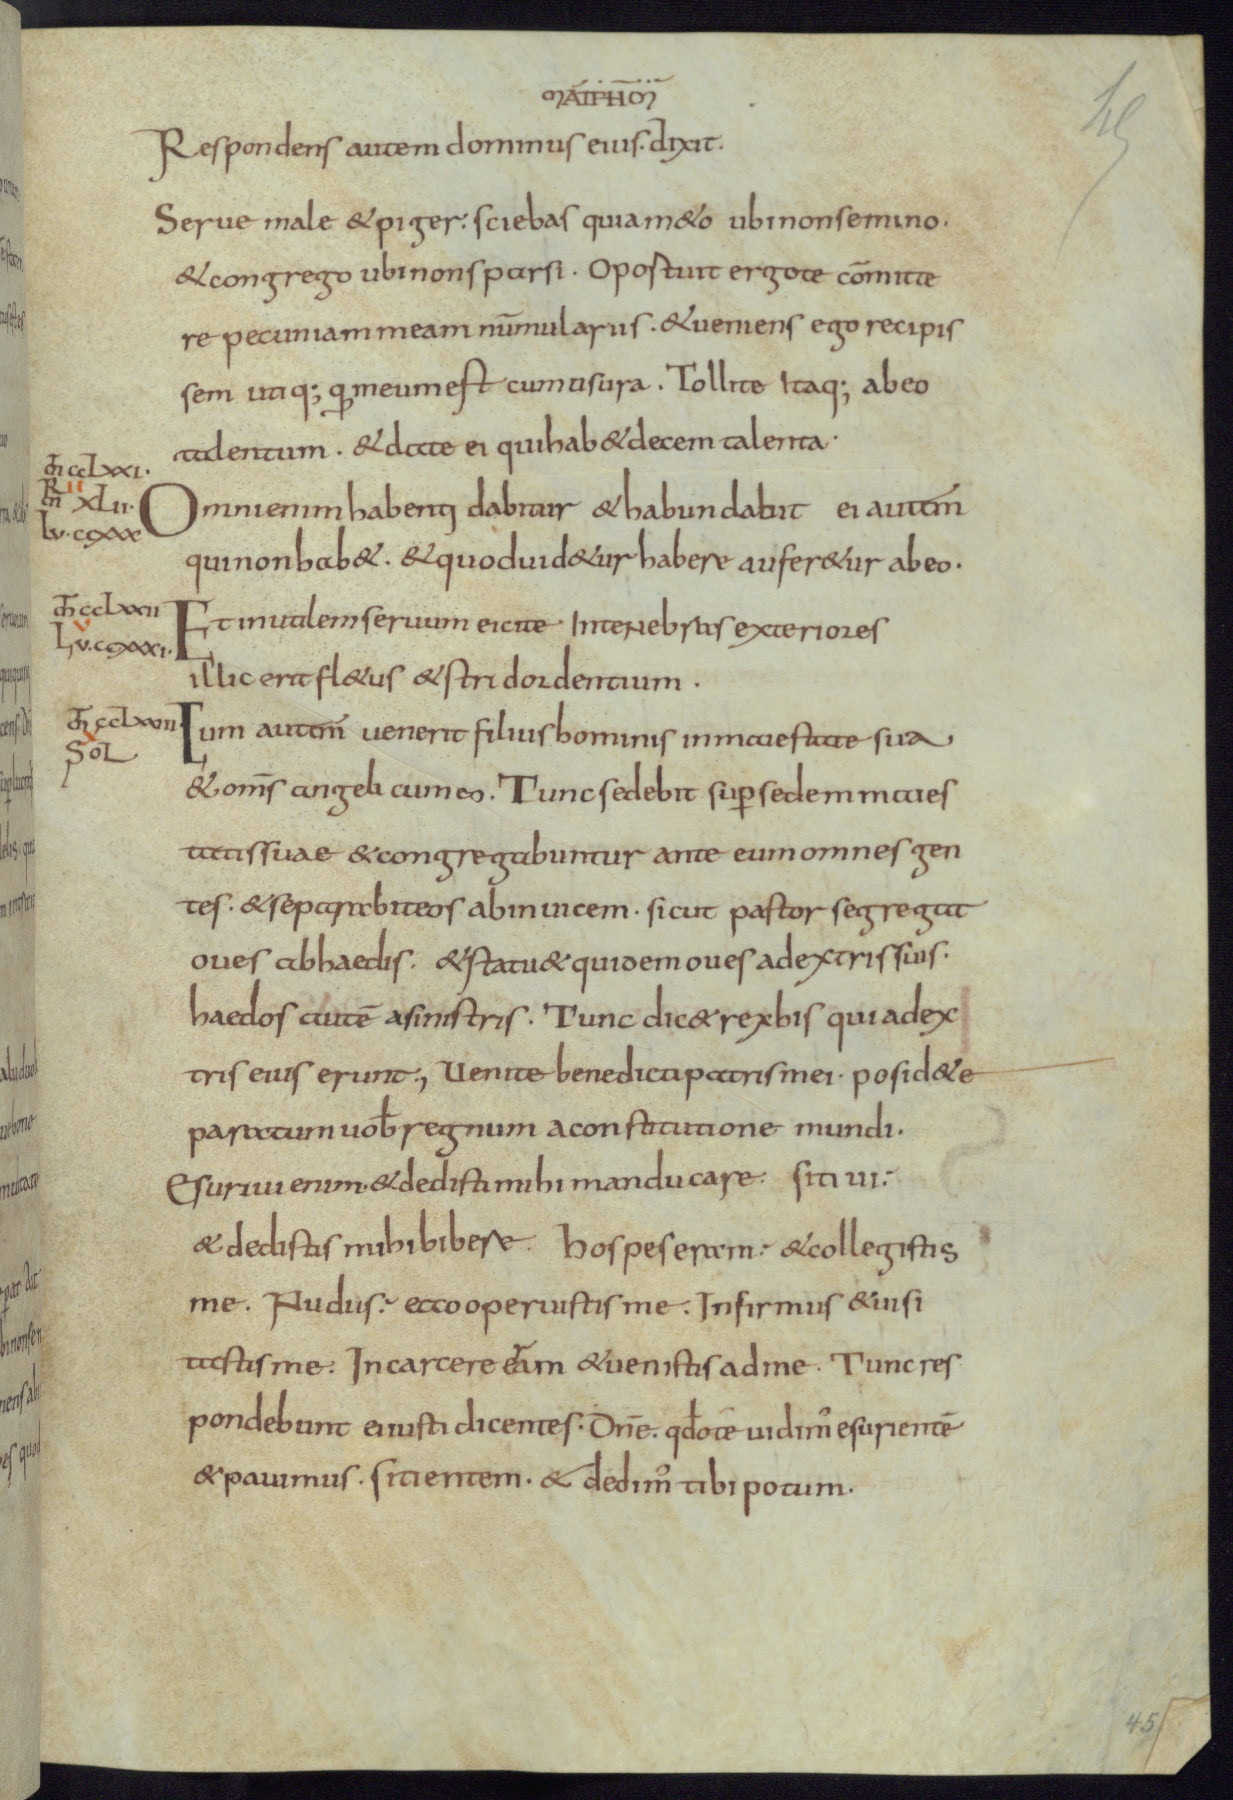 Respondens autem dominus eius. dixit.
Serue male & piger: sciebas quia m&o ubi non semino.
& congrego ubi non sparsi. Oportuit ergo te cōmitte
re pecuniam meam nūmulariis. & ueniens ego recipis
sem utiq; qđ meum est cum usura. Tollite itaq; ab eo
talentum. & date ei qui hab& decem talenta.
m̄ ccLxxi.
R̄ ii
m̄ xLii.
Lv. ccxxx
Omni enim habenti dabitur & habundabit ei autem̄
qui non hab&. & quod uid&ur habere aufer&ur ab eo.
m̄ ccLxxii
v
Lv. ccxxxi.
Et inutilem seruum eicite In tenebras exteriores
illic erit fl&us & stridor dentium.
m̄ ccLxxiii
x
SoL
Cum autem̄ uenerit filius hominis in maiestate sua
& om̄s angeli cum eo. Tunc sedebit sup sedem maies
tatis suae & congregabuntur ante eum omnes gen
tes. & separabit eos ab inuicem. sicut pastor segregat
oues ab haedis. & statu& quidem oues a dextris suis.
haedos autē a sinistris. Tunc dic& rex his qui a dex
tris eius erunt; Uenite benedicti patris mei. posid&e
paratum uob̄ regnum a constitutione mundi.
Esuriui enim. & dedisti mihi manducare. sitiui:
& dedistis mihi bibere. hospes eram: & collegistis
me. Nudus: & cooperuistis me. Infirmus & uisi
tastis me: In carcere erām & uenistis ad me. Tunc res
pondebunt ei iusti dicentes. Dn̄e. qđo tē uidim' esurientē
& pauimus. sitientem. & dedim' tibi potum.
45